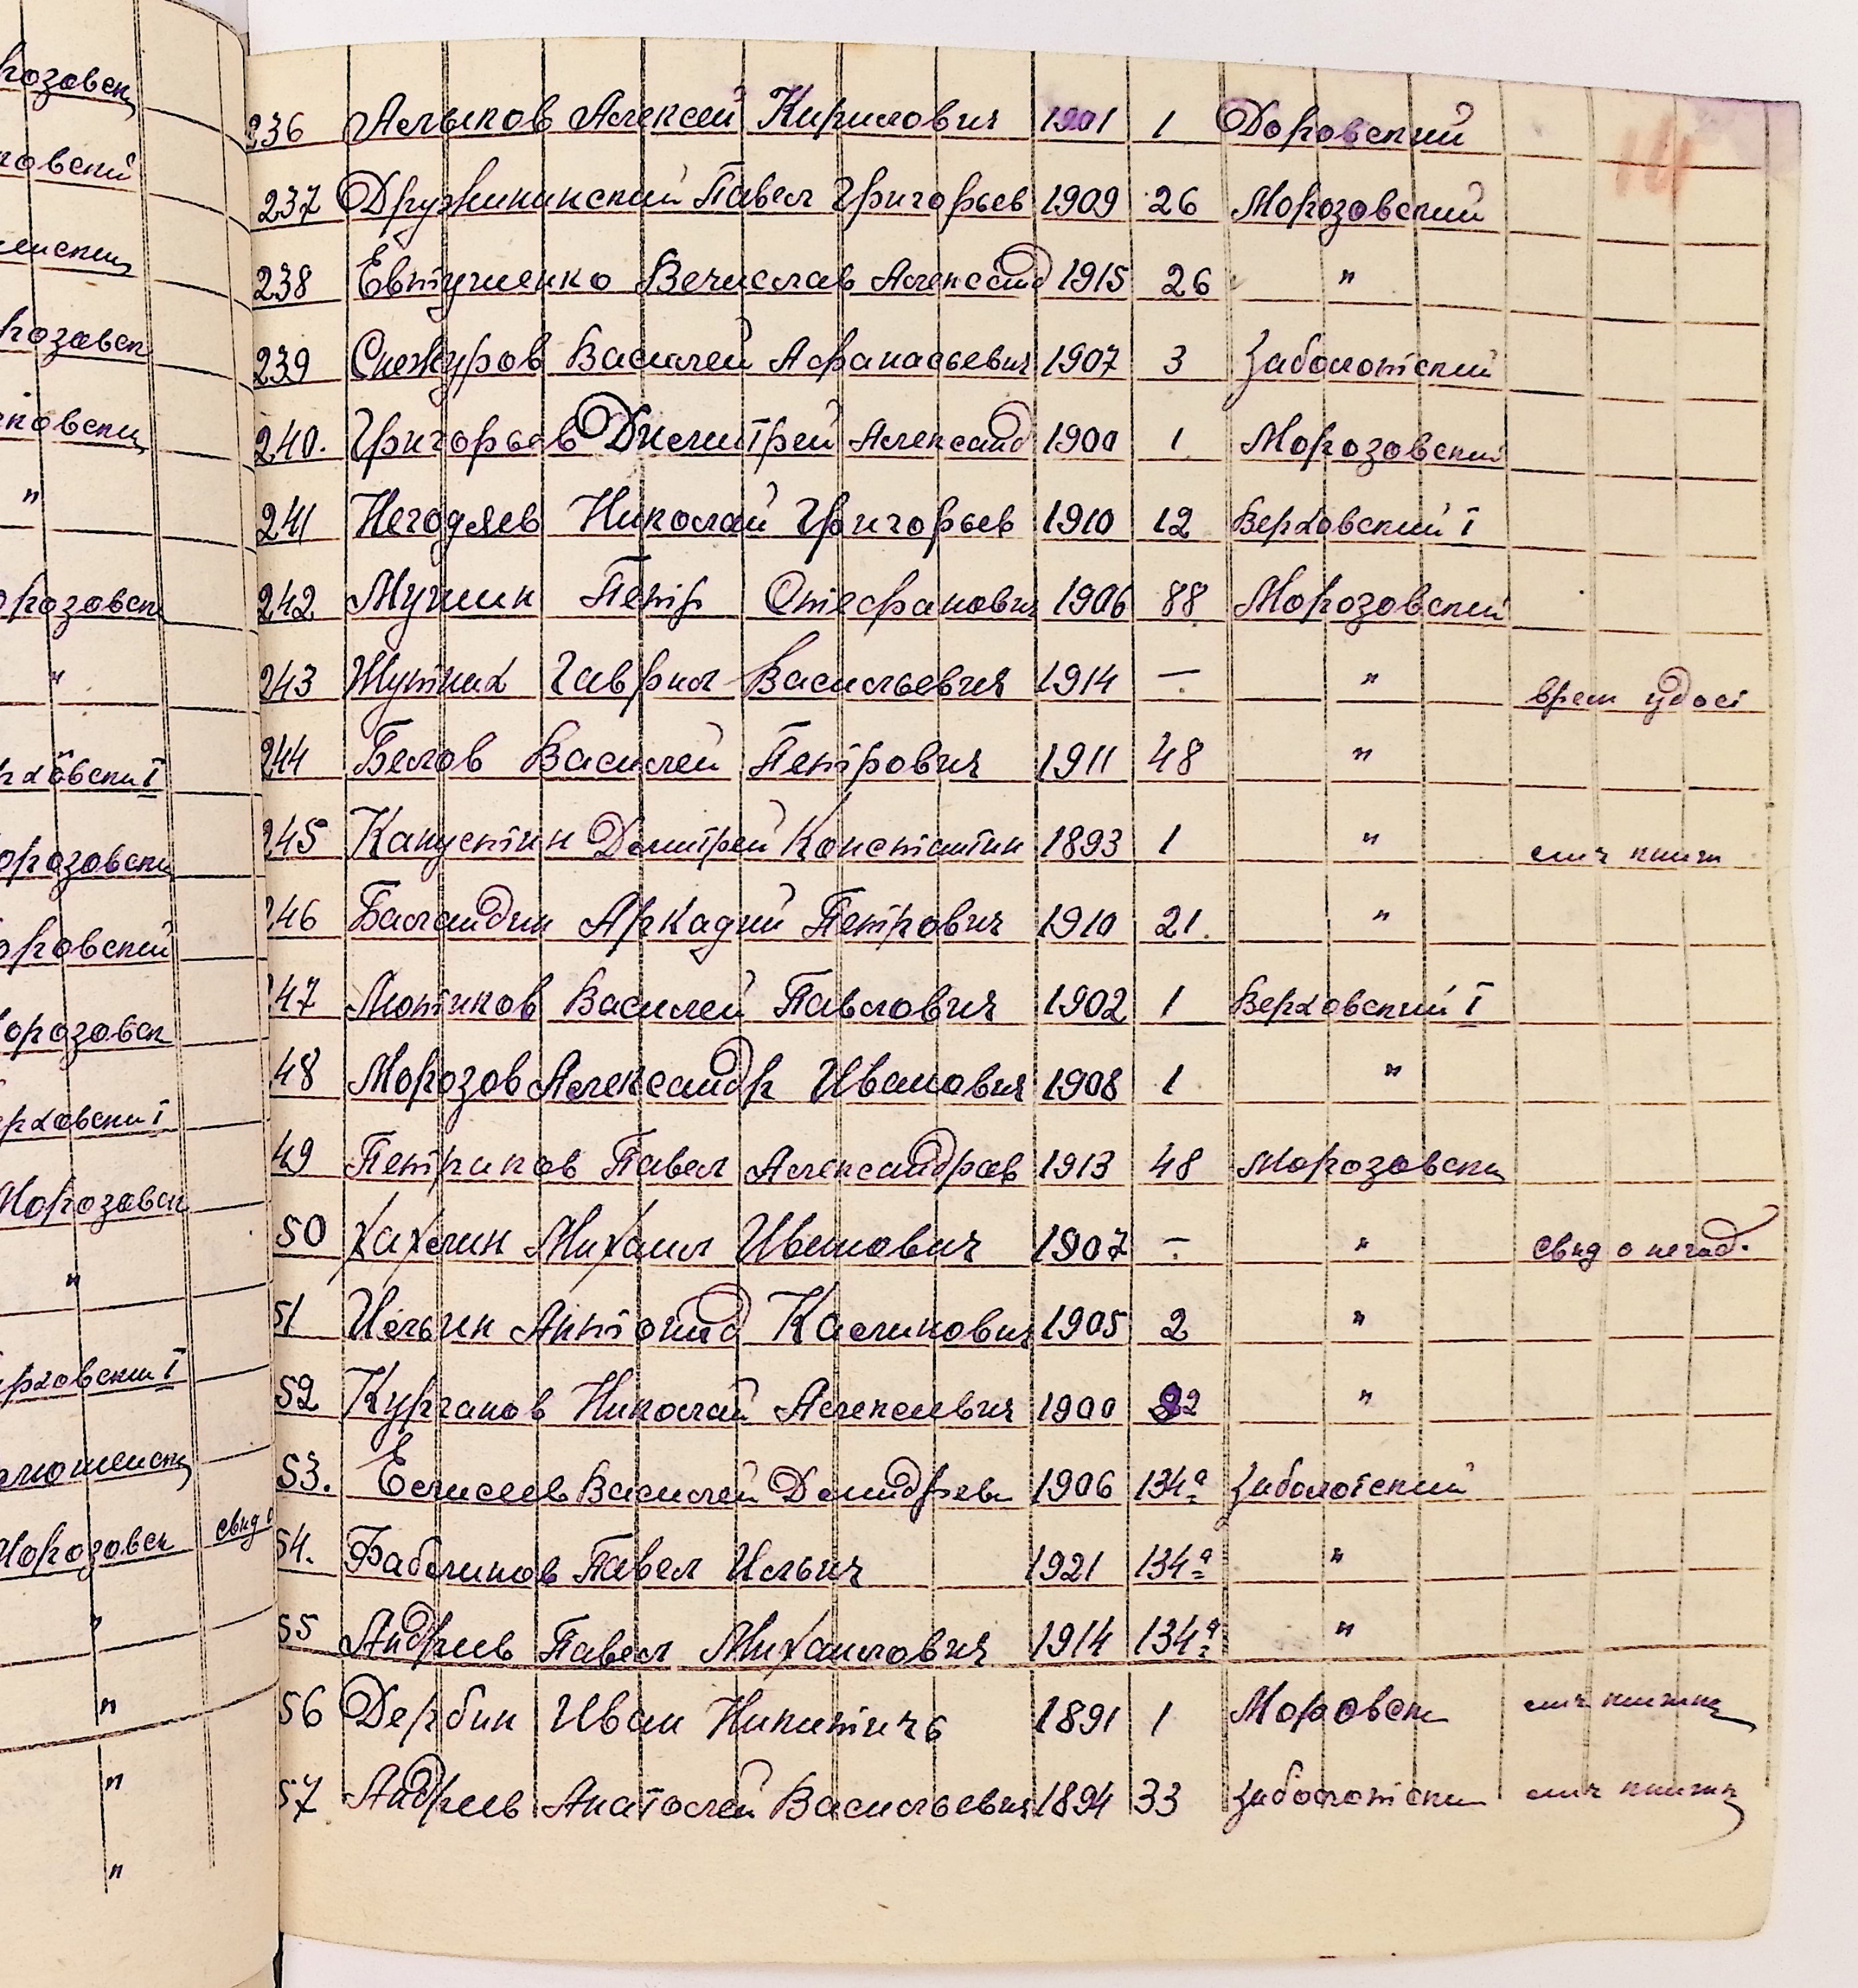 14
236 Алыпов Алексей Кирилович 1901 1 Доровский
237 Дружининский Павел Григорьев 1909 26 Морозовский
238 Евтушенко Вечислав Александ 1915 26 "
239 Снежуров Василей Афанасьевич 1907 3 Заболотский
240. Григорьев Дмитрей Александ 1900 1 Морозовский
241 Негодяев Николай Григорьев 1910 12 Верховский I
242 Мушин Петр Стефанович 1906 88 Морозовский
243 Шутких Гаврил Васильевич 1914 — " врем удост
244 Белов Василей Петрович 1911 48 "
245 Капустин Дмитрей Константин 1893 1 " лич книж
246 Баландин Аркадий Петрович 1910 21. "
247 Мотиков Василей Павлович 1902 1 Верховский I
48 Морозов Александр Иванович 1908 1 "
49 Петриков Павел Александров 1913 48 Морозовски
50 Хахлин Михаил Иванович 1907 — " свид о негод.
51 Ильин Антонид Калинович 1905 2 "
52 Курганов Николай Алексеевич 1900 22 "
53. Елисеев Василей Дмидриев 1906 134а Заболотский
54. Бабликов Павел Ильич 1921 134а "
55 Андреев Павел Михайлович 1914 134а "
56 Дербин Иван Никитичь 1891 1 Моровск лич книжка
57 Андреев Анатолей Васильевич 1894 33 Заболотски лич книжк